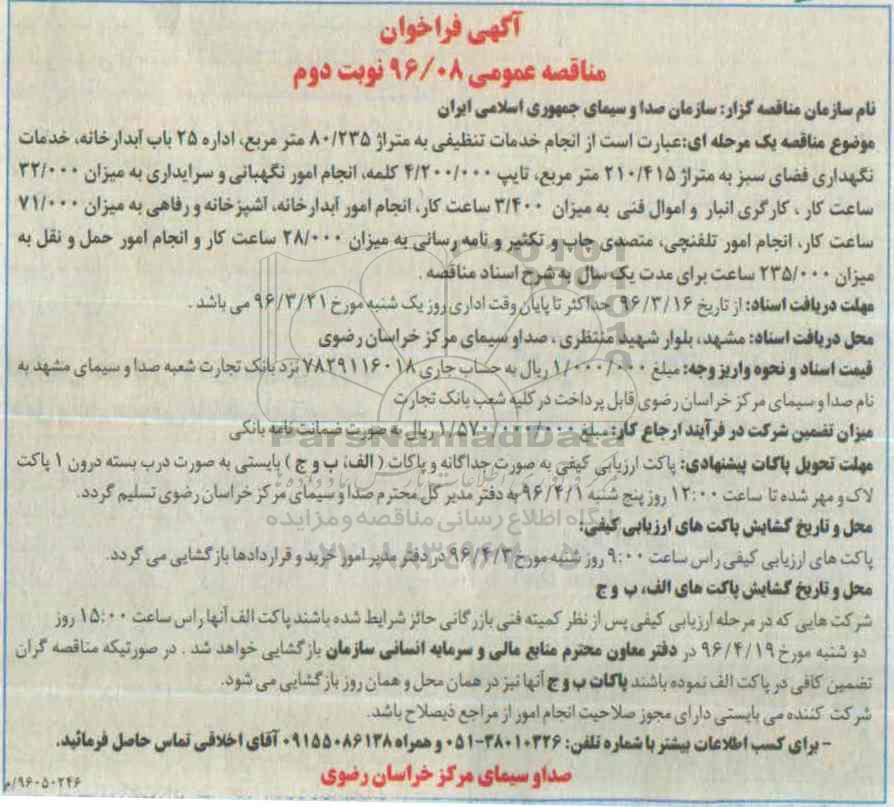 آگهی فراخوان
مناقصه عمومی ۹۶/۰۸ نوبت دوم
نام سازمان مناقصه گزار: سازمان صدا و سیمای جمهوری اسلامی ایران
موضوع مناقصه یک مرحله ای:عبارت است از انجام خدمات تنظیفی به متراژ ۸۰/۲۳۵ متر مربع، اداره ۲۵ باب آبدارخانه، خدمات
نگهداری فضای سبز به متراژ ۲۱۰/۴۱۵ متر مربع، تایپ ۴/۲۰۰/۰۰۰ کلمه، انجام امور نگهبانی و سرایداری به میزان ۳۲/۰۰۰
ساعت کار ، کارگری انبار و اموال فنی به میزان ۳/۴۰۰ ساعت کار، انجام امور آبدارخانه، آشپزخانه و رفاهی به میزان ۷۱/۰۰۰
ساعت کار، انجام امور تلفنچی، متصدی چاپ و تکثیر و نامه رسانی به میزان ۲۸/۰۰۰ ساعت کار و انجام امور حمل و نقل به
میزان ۲۳۵/۰۰۰ ساعت برای مدت یک سال به شرح اسناد مناقصه .
مهلت دریافت اسناد: از تاریخ ۹۶/۳/۱۶ حداکثر تا پایان وقت اداری روز یک شنبه مورخ ۹۶/۳/۲۱ می باشد .
محل دریافت اسناد: مشهد، بلوار شهید منتظری ، صدا و سیمای مرکز خراسان رضوی
قیمت اسناد و نحوه واریز وجه: مبلغ ۱/۰۰۰/۰۰۰ ریال به حساب جاری ۷۸۲۹۱۱۶۰۱۸ نزد بانک تجارت شعبه صدا و سیمای مشهد به
نام صدا و سیمای مرکز خراسان رضوی قابل پرداخت در کلیه شعب بانک تجارت
میزان تضمین شرکت در فرآیند ارجاع کار: مبلغ ۱/۵۷۰/۰۰۰/۰۰۰ ریال به صورت ضمانت نامه بانکی
ParsNamadData
مهلت تحویل پاکات پیشنهادی: پاکت ارزیابی کیفی به صورت جداگانه و پاکات ( الف، ب و ج ) بایستی به صورت درب بسته درون ۱ پاکت
لاک و مهر شده تا ساعت ۱۲:۰۰ روز پنج شنبه ۹۶/۴/۱ به دفتر مدیر کل محترم صدا و سیمای مرکز خراسان رضوی تسلیم گردد.
پایگاه اطلاع رسانی مناقصه و مزایده
محل و تاریخ گشایش پاکت های ارزیابی کیفی:
پاکت های ارزیابی کیفی راس ساعت ۹:۰۰ روز شنبه مورخ ۹۶/۴/۳ در دفتر مدیر امور خرید و قراردادها بازگشایی می گردد.
محل و تاریخ گشایش پاکت های الف، ب و ج
شرکت هایی که در مرحله ارزیابی کیفی پس از نظر کمیته فنی بازرگانی حائز شرایط شده باشند پاکت الف آنها راس ساعت ۱۵:۰۰ روز
دو شنبه مورخ ۹۶/۴/۱۹ در دفتر معاون محترم منابع مالی و سرمایه انسانی سازمان بازگشایی خواهد شد . در صورتیکه مناقصه گران
تضمین کافی در پاکت الف نموده باشند پاکات ب و ج آنها نیز در همان محل و همان روز بازگشایی می شود.
شرکت کننده می بایستی دارای مجوز صلاحیت انجام امور از مراجع ذیصلاح باشد.
- برای کسب اطلاعات بیشتر با شماره تلفن: ۳۸۰۱۰۳۲۶-۰۵۱ و همراه ۰۹۱۵۵۰۸۶۱۳۸ آقای اخلاقی تماس حاصل فرمائید.
صدا و سیمای مرکز خراسان رضوی
۹۶۰۵۰۲۴۶/م